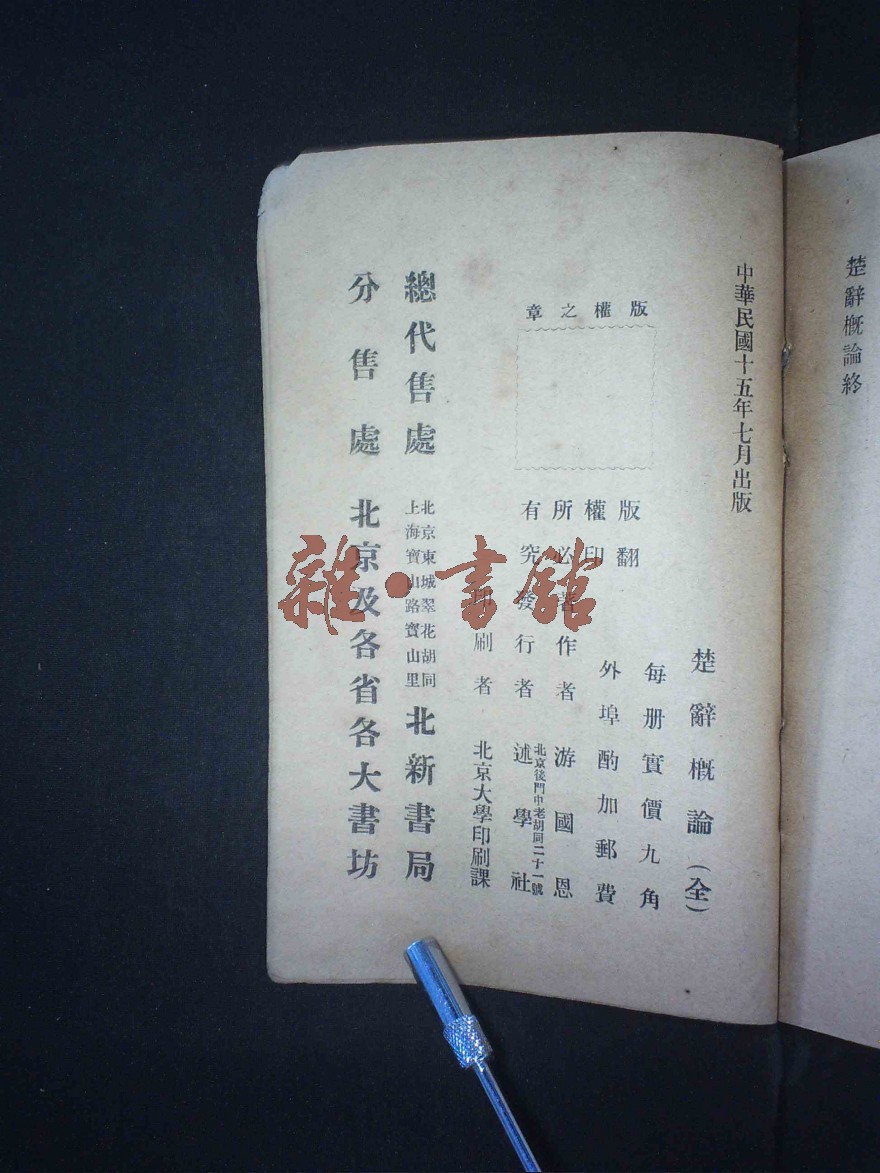 楚辭概論終
中華民國十五年七月出版
楚辭概論（全）
每册實價九角
外埠酌加郵費
版權之章
版權所有
翻印必究
著作者 游國恩
發行者 北京後門中老胡同二十一號 述學社
印刷者 北京大學印刷課
總代售處 北京東城翠花胡同 上海寶山路寶山里 北新書局
分售處 北京及各省各大書坊
雜·書館